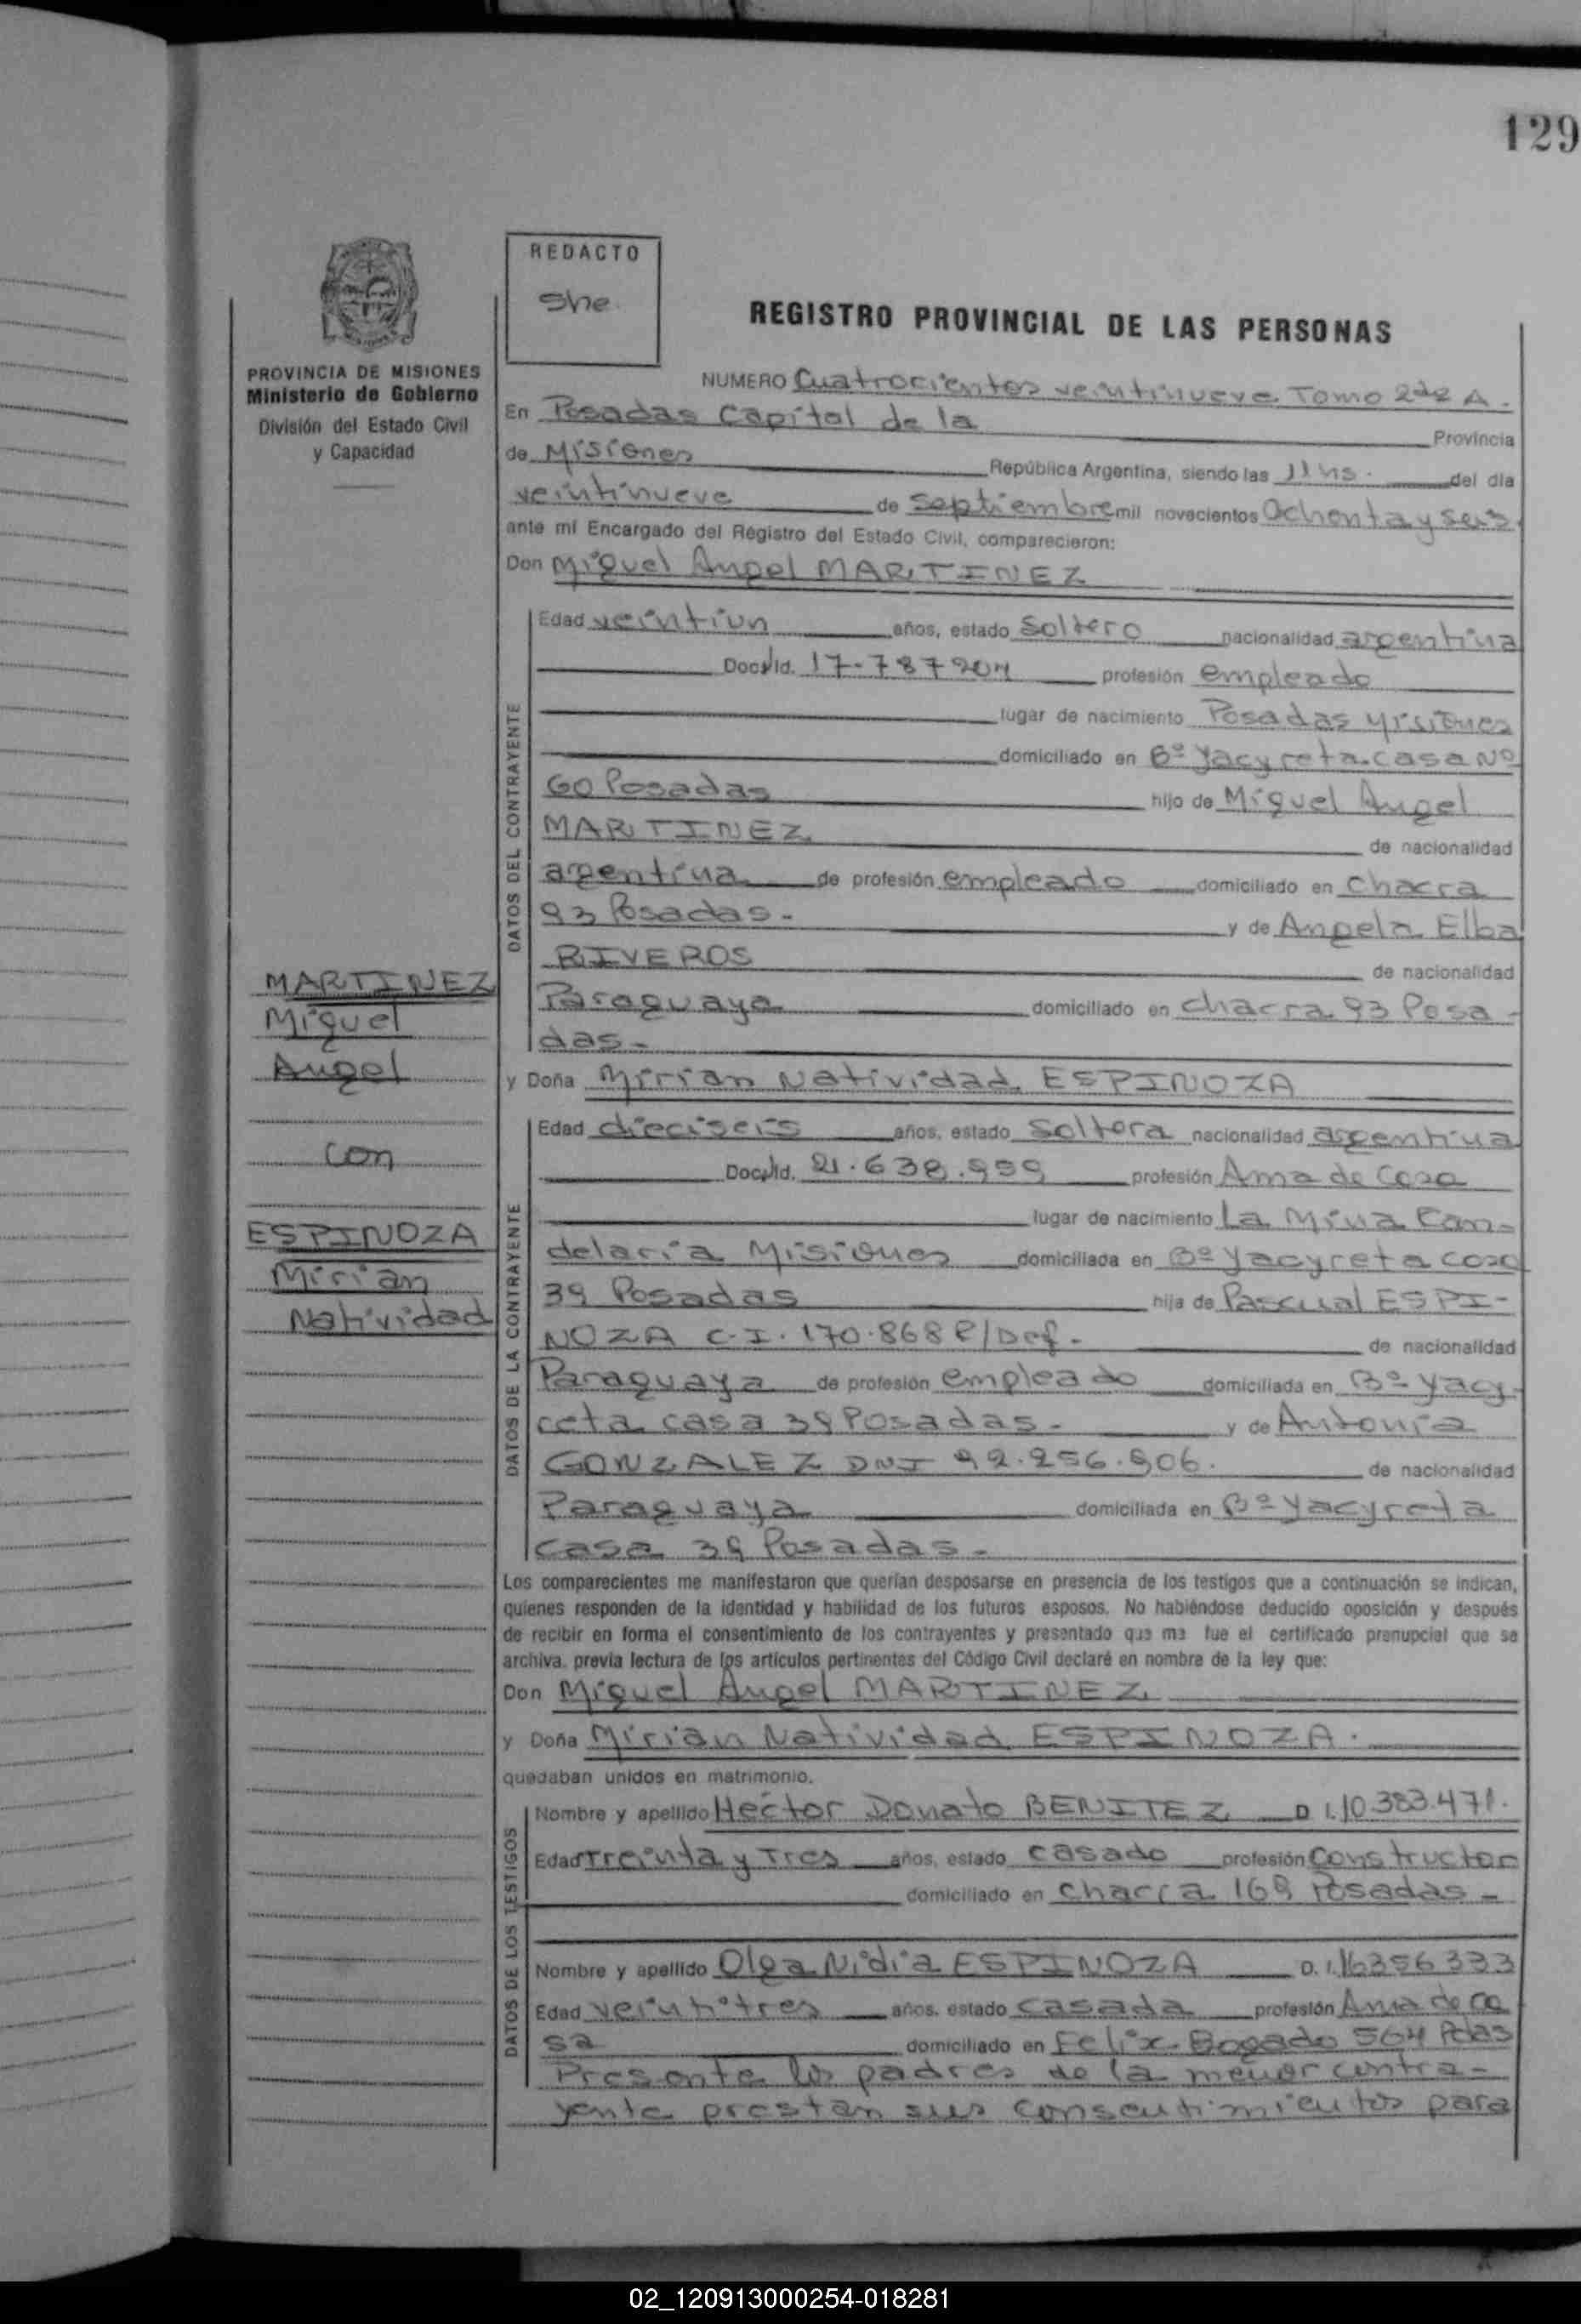 129
REDACTO
She.
PROVINCIA DE MISIONES
Ministerio de Gobierno
División del Estado Civil
y Capacidad
REGISTRO PROVINCIAL DE LAS PERSONAS
NUMERO Cuatrocientos veintinueve Tomo A.
En Posadas Capital de la Provincia
de Misiones República Argentina, siendo las 11 hs. del día
veintinueve de septiembre mil novecientos Ochenta y seis.
ante mí Encargado del Registro del Estado Civil, comparecieron:
Don Miguel Angel MARTINEZ
DATOS DEL CONTRAYENTE
Edad veintiun años, estado Soltero nacionalidad argentina
Doc. Id. profesión empleado
lugar de nacimiento Posadas Misiones
domiciliado en Bº Yacyreta.casa Nº
60 Posadas hijo de Miguel Angel
MARTINEZ de nacionalidad
argentina de profesión empleado domiciliado en Chacra
93 Posadas. y de Angela Elba
RIVEROS de nacionalidad
Paraguaya domiciliado en chacra 93 Posa-
das.
y Doña Mirian Natividad ESPINOZA
DATOS DE LA CONTRAYENTE
Edad dieciseis años, estado Soltera nacionalidad argentina
Doc. Id. 21.638.959 profesión Ama de Casa
lugar de nacimiento La Mina Can-
delaria Misiones domiciliada en Bº Yacyreta casa
39 Posadas hija de Pascual ESPI-
NOZA C.I. 170.868 P/Def. de nacionalidad
Paraguaya de profesión empleado domiciliada en Bº Yacy-
reta casa 39 Posadas. y de Antonia
GONZALEZ DNI 92.256.906. de nacionalidad
Paraguaya domiciliada en Bº Yacyreta
casa 39 Posadas.
MARTINEZ
Miguel
Angel
con
ESPINOZA
Mirian
Natividad
Los comparecientes me manifestaron que querían desposarse en presencia de los testigos que a continuación se indican,
quienes responden de la identidad y habilidad de los futuros esposos. No habiéndose deducido oposición y después
de recibir en forma el consentimiento de los contrayentes y presentado que me fue el certificado prenupcial que se
archiva. previa lectura de los artículos pertinentes del Código Civil declaré en nombre de la ley que:
Don Miguel Angel MARTINEZ
y Doña Mirian Natividad ESPINOZA.
quedaban unidos en matrimonio.
DATOS DE LOS TESTIGOS
Nombre y apellido Hector Donato BENITEZ D.I. 10.383.471.
Edad Treinta y Tres años, estado casado profesión Constructor
domiciliado en Chacra 169 Posadas
Nombre y apellido Olga Nidia ESPINOZA D.I. 16356333
Edad veintitres años. estado casada profesión Ama de ca
sa domiciliado en Felix Bogado 564 Pdas
Presente los padres de la menor contra-
yente prestan sus consentimientos para
02_120913000254-018281